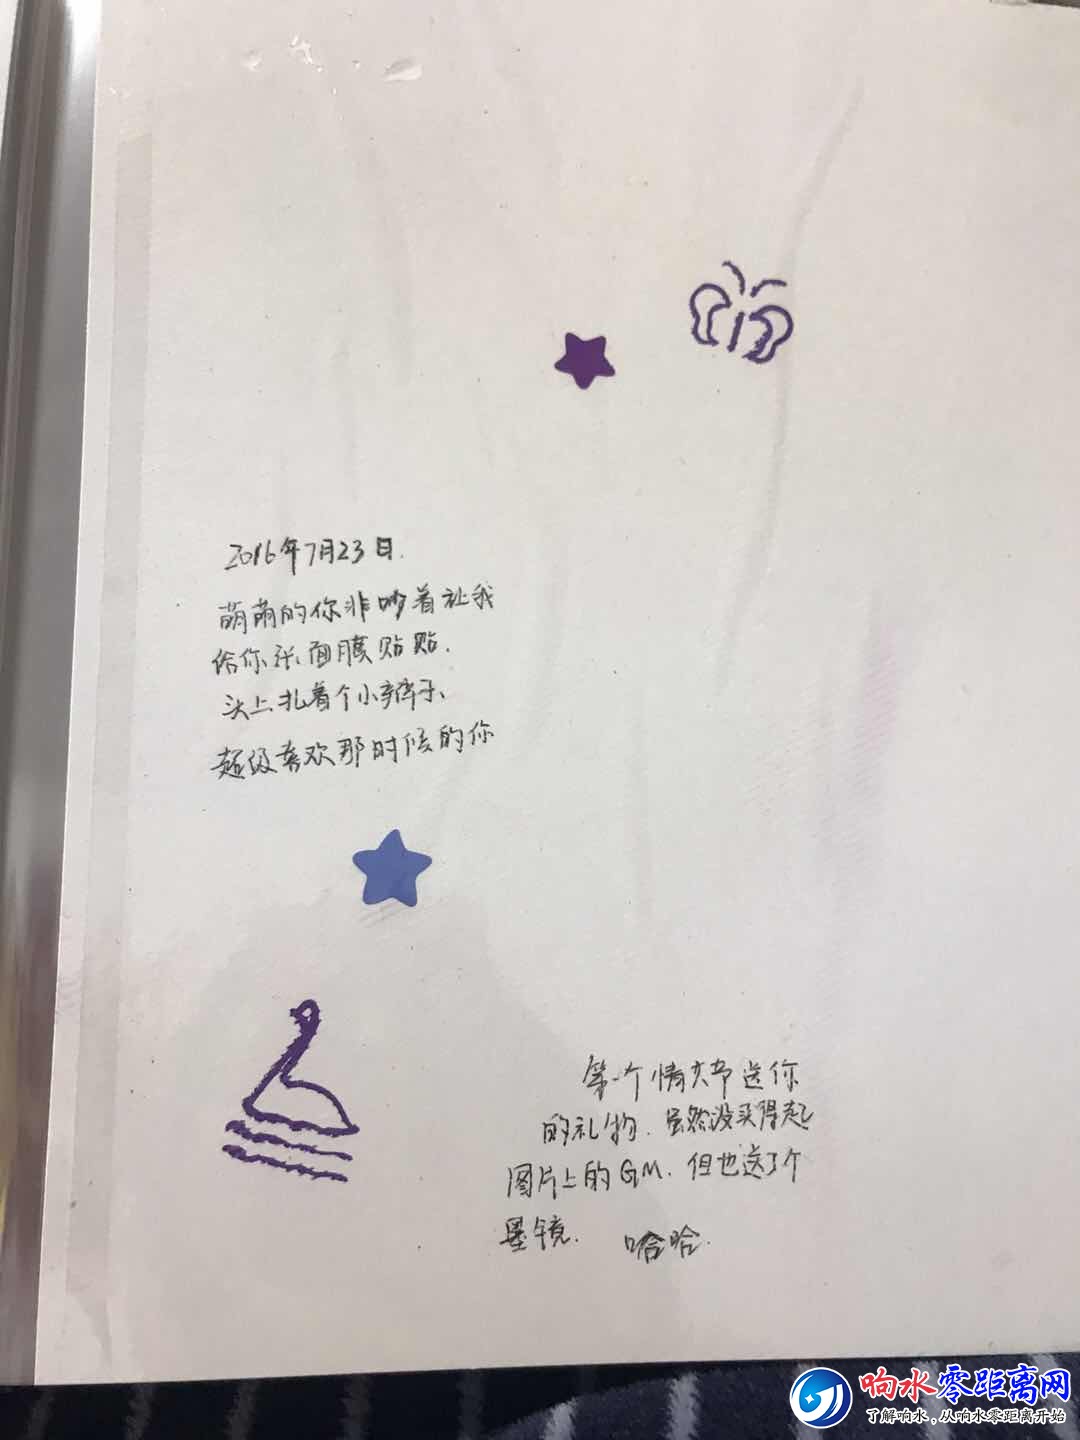 2016年7月23日.
萌萌的你非吵着让我
给你张面膜贴贴.
头上扎着个小辫子、
超级喜欢那时候的你
第一个情人节送你
的礼物.虽然没买得起
图片上的GM.但也送了个
墨镜. 哈哈.
响水零距离网
了解响水，从响水零距离开始